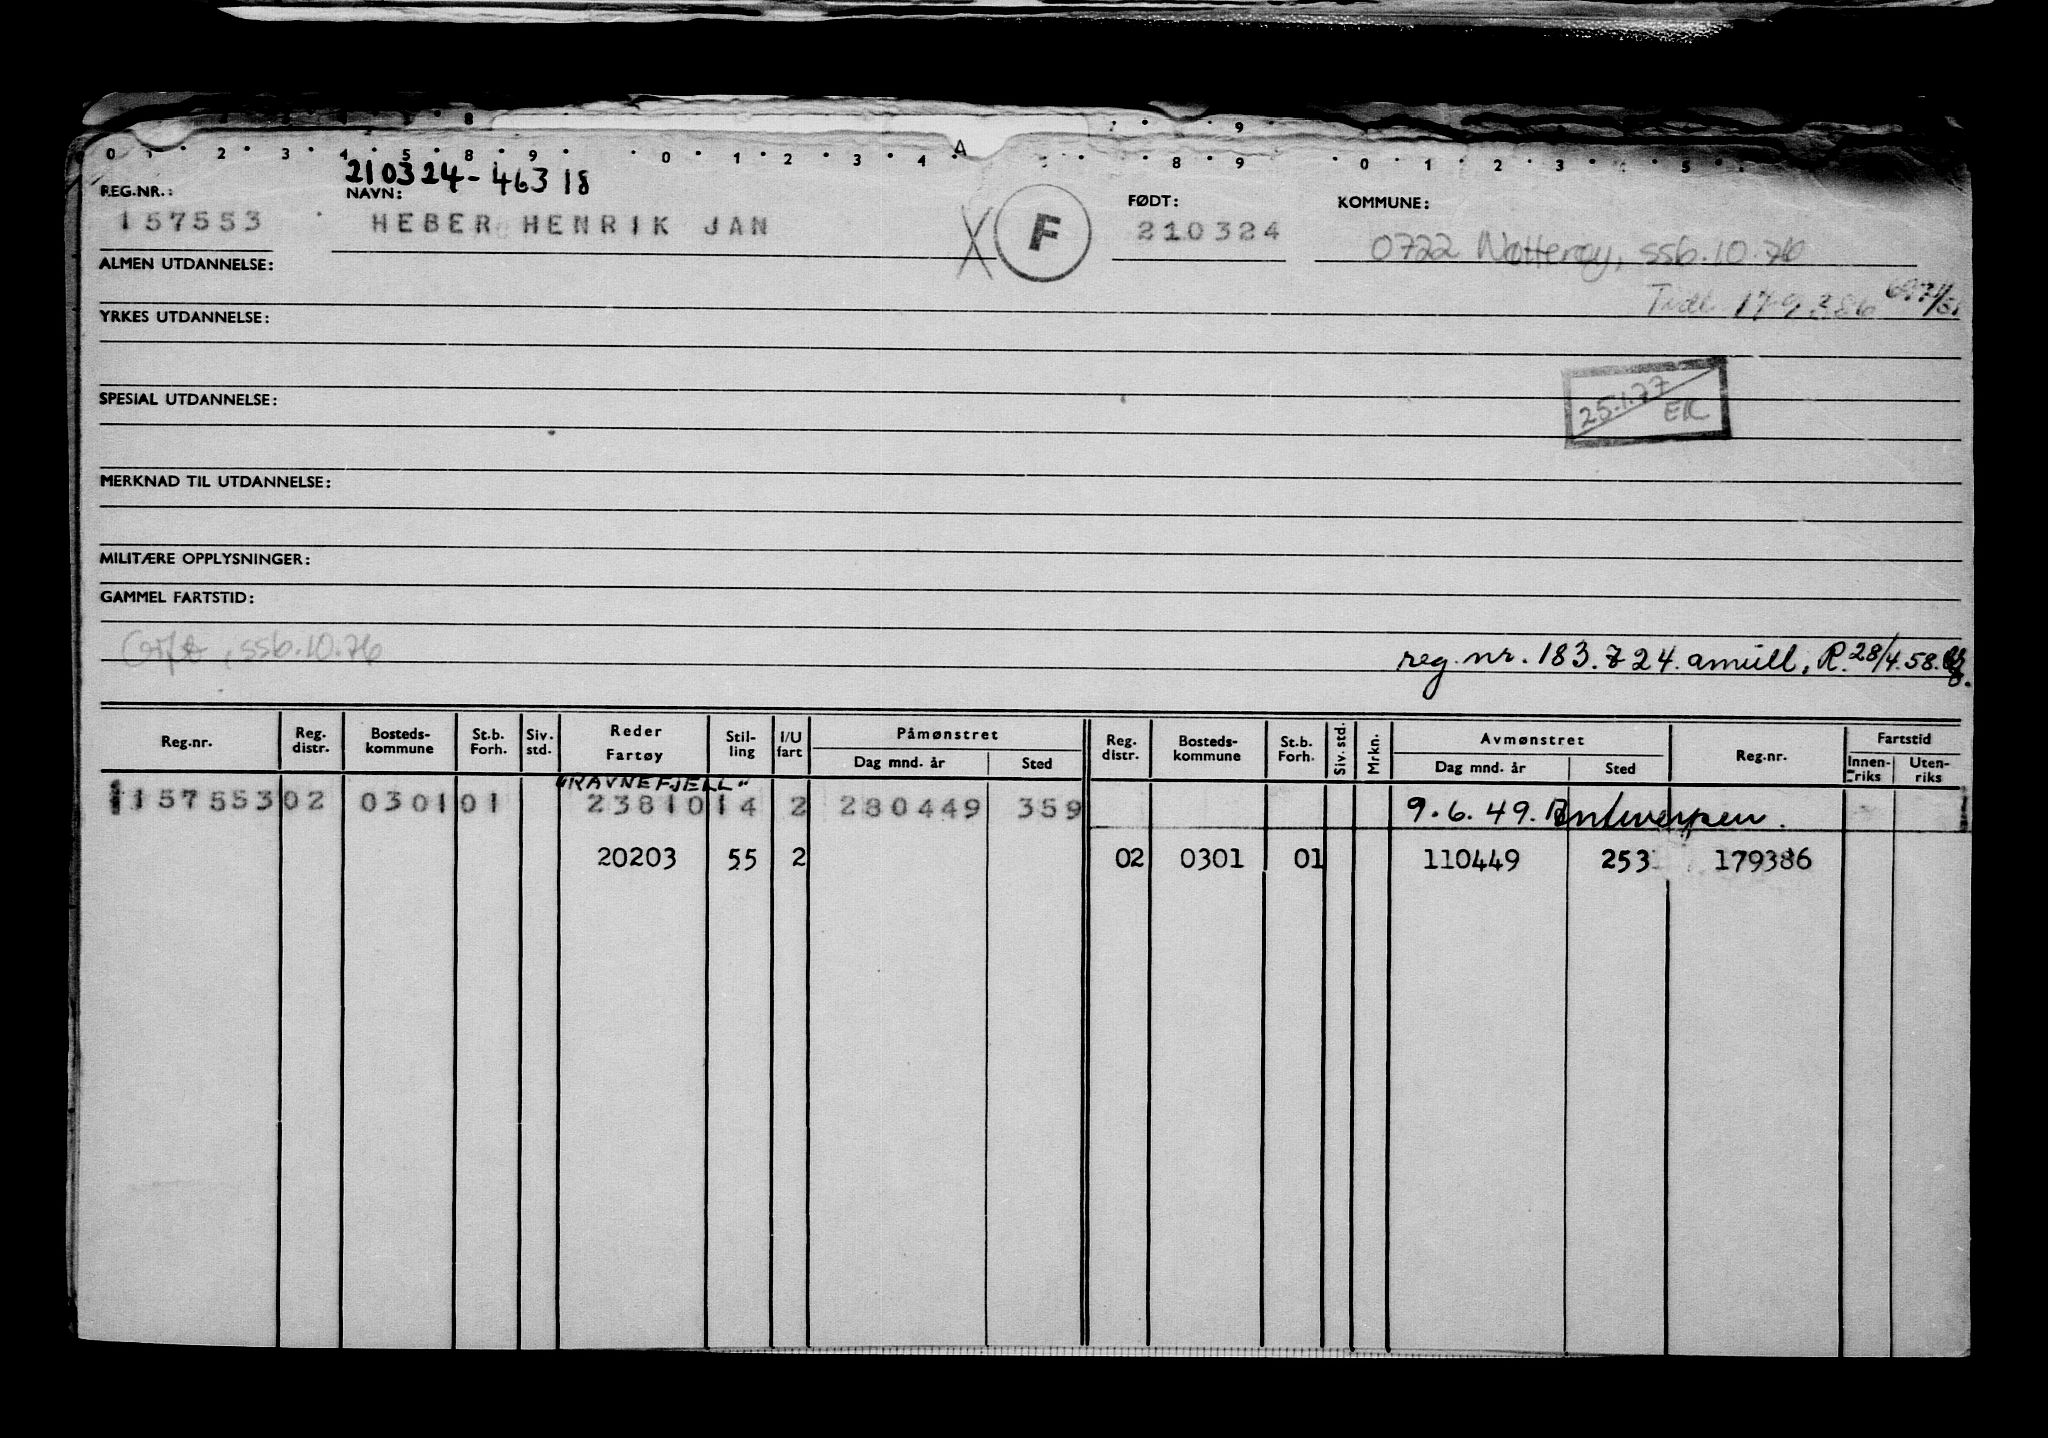 0 1 2 3 4 5 8 9 0 1 2 3 4 A 8 9 0 1 2 3 4 5
210324-46318
REG.NR.: NAVN: FØDT: KOMMUNE:
157553 HEBER HENRIK JAN X F 210324 0722 Nøtterøy, ssb.10.76
ALMEN UTDANNELSE:
Tidl. 179386
YRKES UTDANNELSE:
25.1.77
EK
SPESIAL UTDANNELSE:
MERKNAD TIL UTDANNELSE:
MILITÆRE OPPLYSNINGER:
GAMMEL FARTSTID:
Gift, ssb.10.76
reg. nr. 183.724. annull. R. 28/4.58.
Reg.nr. Reg. distr. Bosteds-kommune St.b. Forh. Siv. std. Reder Fartøy Stil-ling I/U fart Påmønstret Dag mnd. år Sted Reg. distr. Bosteds-kommune St.b. Forh. Siv. std. Mrkn. Avmønstret Dag mnd. år Sted Reg.nr. Fartstid Innen-riks Uten-riks
"RAVNEFJELL"
157553 02 0301 01 23810 14 2 280449 359 9.6.49. Antwerpen.
20203 55 2 02 0301 01 110449 253 179386